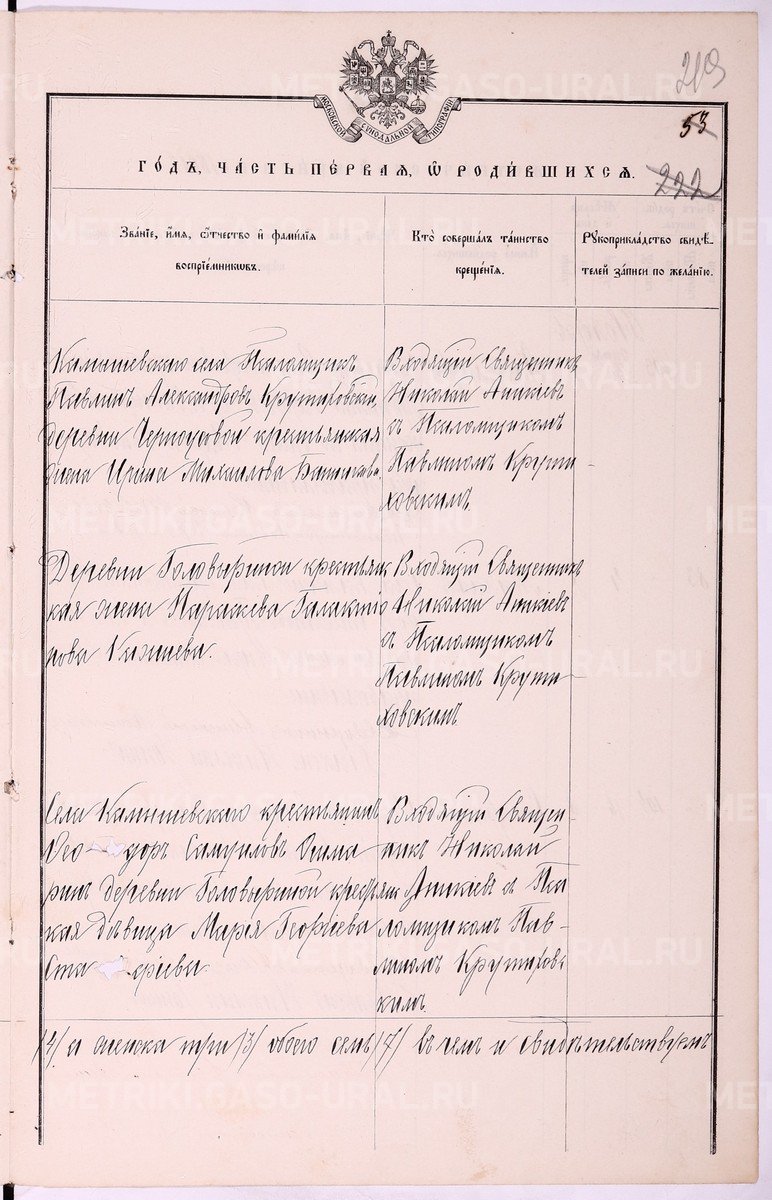 219
53
222
МОСКОВСКОЙ СѴНОДАЛЬНОЙ ТИПОГРАФІИ
ГО́ДЪ, ЧА́СТЬ ПЕ́РВАЯ, Ѽ РОДИ́ВШИХСЯ.
ЗВА́НІЕ, И҆́МЯ, Ѻ҆́ТЧЕСТВО И҆ ФАМИ́ЛІЯ
ВОСПРІЕ́МНИКОВЪ.
КТО̀ СОВЕРША́ЛЪ ТА́ИНСТВО
КРЕЩЕ́НІЯ.
РꙊКОПРИКЛА́ДСТВО СВИДѢ́-
ТЕЛЕЙ ЗА́ПИСИ ПО ЖЕЛА́НІЮ.
Камышевскаго села Псаломщикъ
Павлинъ Александровъ Крутиховскій,
деревни Черноусовой крестьянская
жена Ирина Михаилова
Входящій Священникъ
Николай
съ Псаломщикомъ
Павлиномъ Крути-
ховскимъ.
Деревни Головыриной крестьян
ская жена Параскева Галактіо
нова
Входящій Священникъ
Николай
съ Псаломщикомъ
Павлиномъ Крути-
ховскимъ
Села Камышевскаго крестьянинъ
Ѳео- доръ Самуиловъ
деревни Головыриной крестьян
ская дѣвица Марія Георгіева
Входящій Священ-
никъ Николай
съ Пса
ломщикомъ Пав-
линомъ Крутиховс
кимъ.
/4/ а женска три /3/ обоего семь /7/ въ чемъ и свидѣтельствуемъ
METRIKI.GASO-URAL.RU